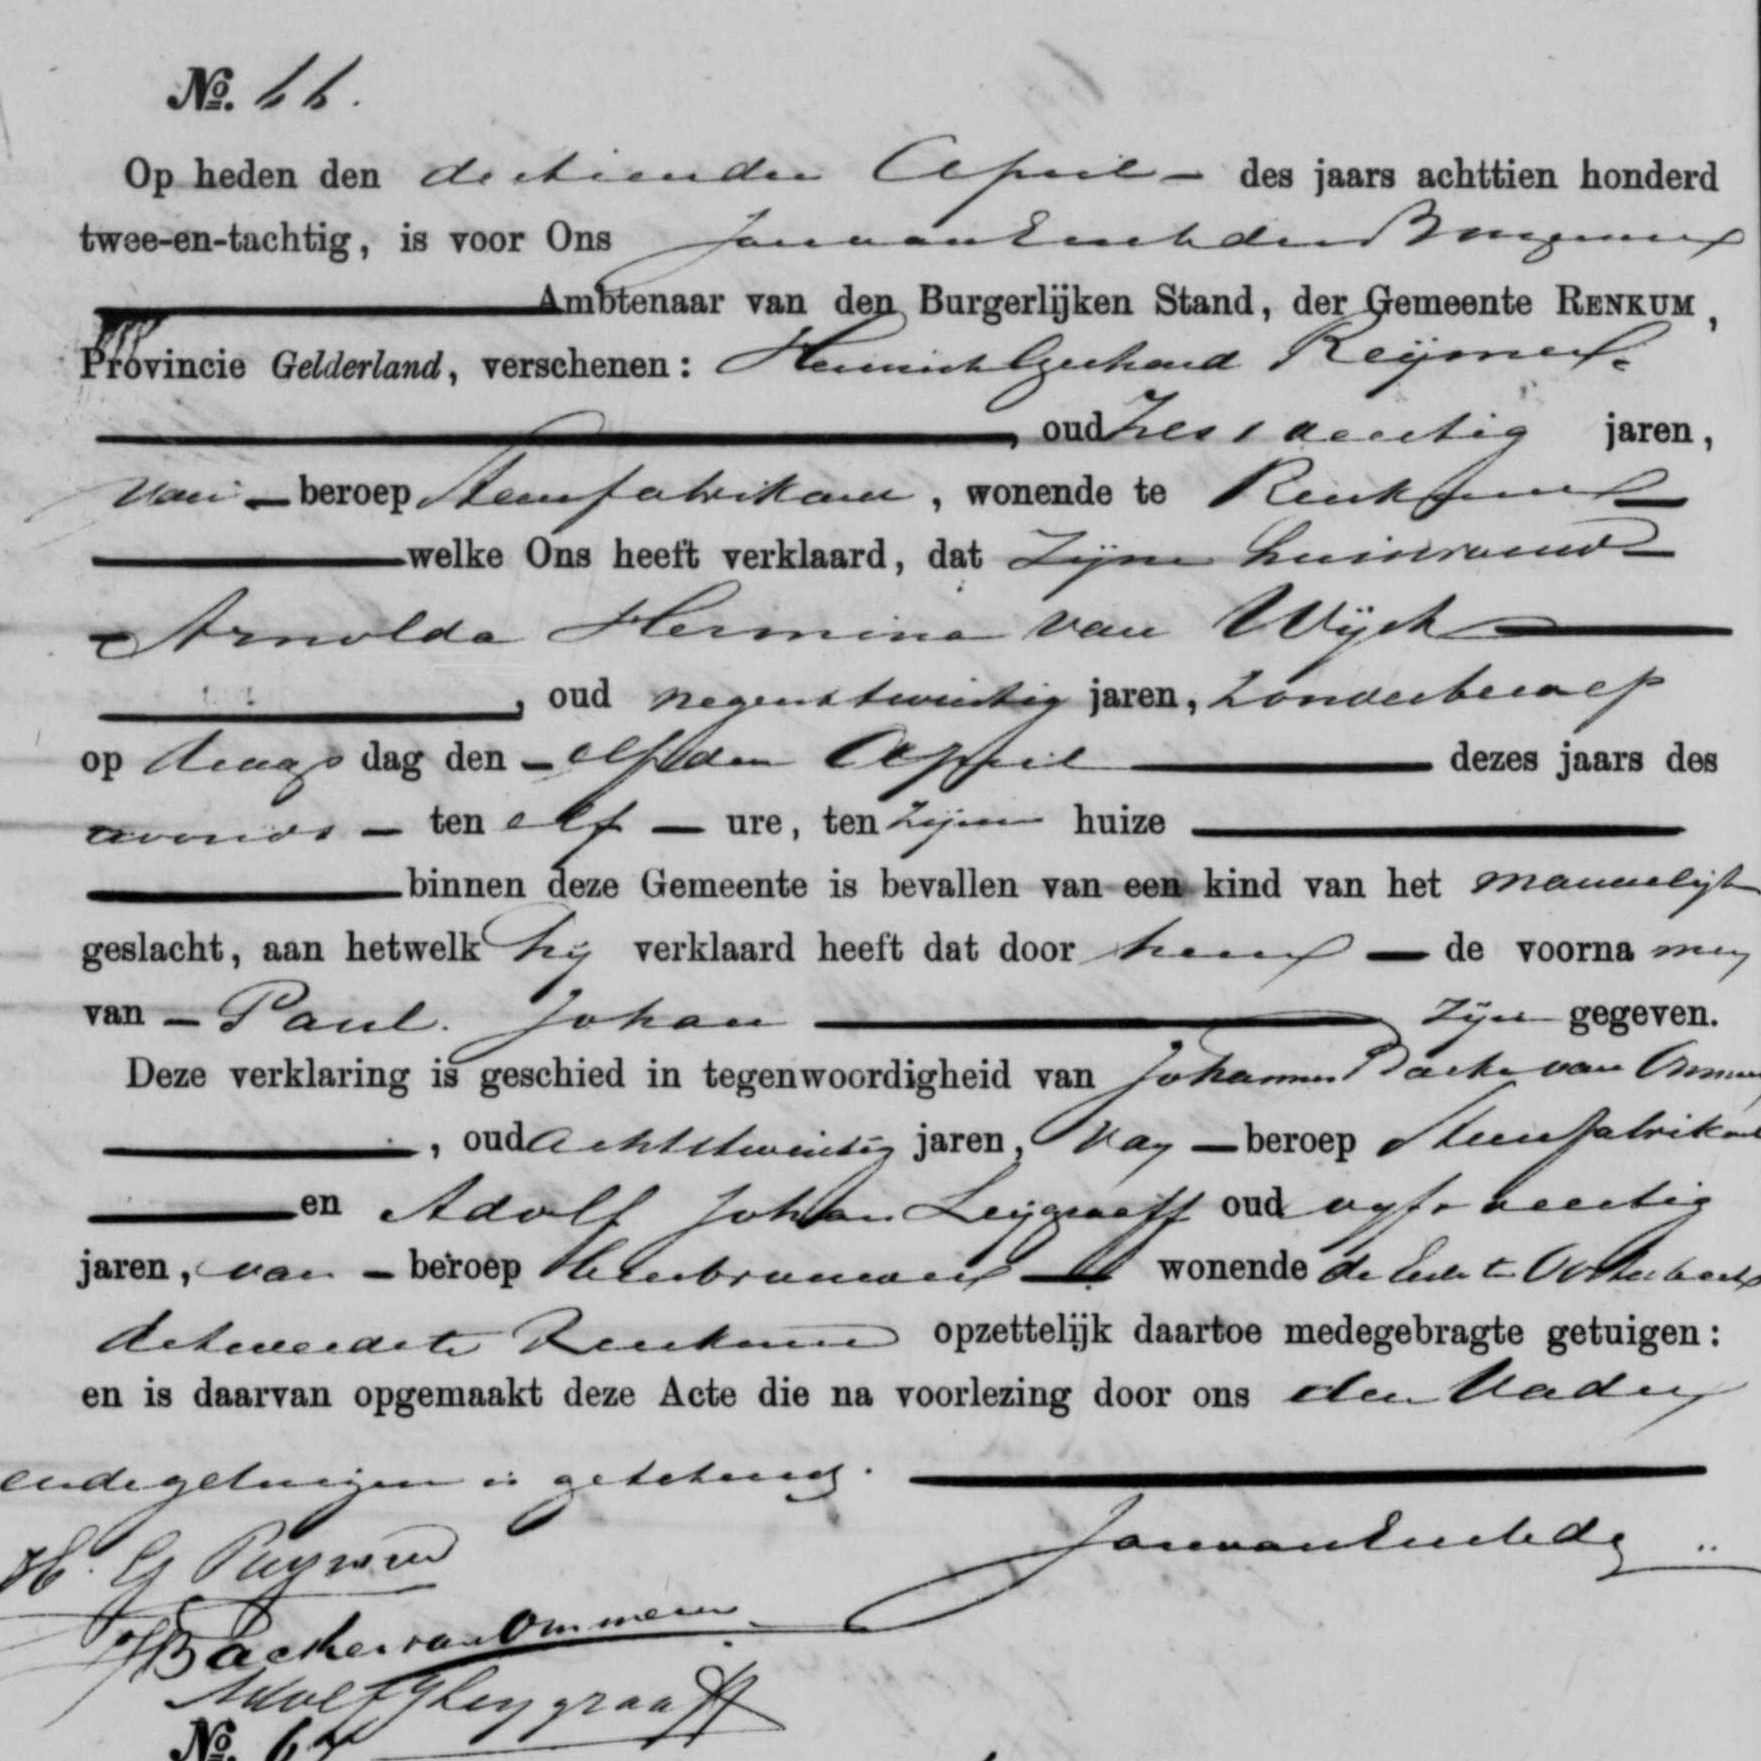 No. 66.
Op heden den dertienden April des jaars achttien honderd
twee-en-tachtig, is voor Ons Jan van Embden Burgemeester
Ambtenaar van den Burgerlijken Stand, der Gemeente RENKUM,
Provincie Gelderland, verschenen: Heinrich Gerhard Reijmer
, oud zes en veertig jaren,
van beroep Steenfabrikant, wonende te Renkum
welke Ons heeft verklaard, dat Zijne huisvrouw
Arnolda Hermina van Wijck
, oud negen & twintig jaren, zonder beroep
op dings dag den elfden April dezes jaars des
avonds ten elf ure, ten zijnen huize
binnen deze Gemeente is bevallen van een kind van het mannelijk
geslacht, aan hetwelk hij verklaard heeft dat door hem de voorna men
van Paul Johan Zijn gegeven.
Deze verklaring is geschied in tegenwoordigheid van Johannes Backer van Ommeren
, oud acht & twintig jaren, van beroep Steenfabrikant
en Adolf Johan Leijgraaff oud vijf & veertig
jaren, van beroep Bierbrouwer wonende de Eerste te Oosterbeek
de tweede te Renkum opzettelijk daartoe medegebragte getuigen:
en is daarvan opgemaakt deze Acte die na voorlezing door ons den Vader
en de getuigen is geteekend.
H. G Reymer Jan van Embden
J Backer van Ommeren
Adolf J Leygraaff
No. 67